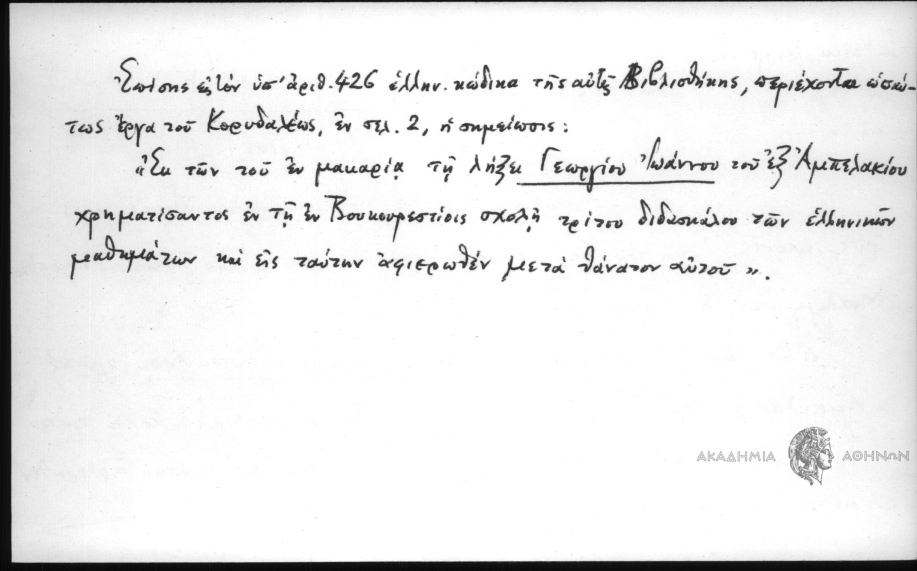 Ἐπίσης εἰς τὸν ὑπ' ἀριθ. 426 ἑλλην. κώδικα τῆς αὐτῆς Βιβλιοθήκης, περιέχοντα ὡσαύ-
τως ἔργα τοῦ Κορυδαλέως, ἐν σελ. 2, ἡ σημείωσις:
"Ἐκ τῶν τοῦ ἐν μακαρίᾳ τῇ λήξει Γεωργίου Ἰωάννου τοῦ ἐξ Ἀμπελακίου
χρηματίσαντος ἐν τῇ ἐν Βουκουρεστίοις σχολῇ τρίτου διδασκάλου τῶν ἑλληνικῶν
μαθημάτων καὶ εἰς ταύτην ἀφιερωθέν μετὰ θάνατον αὐτοῦ".
ΑΚΑΔΗΜΙΑ ΑΘΗΝΩΝ